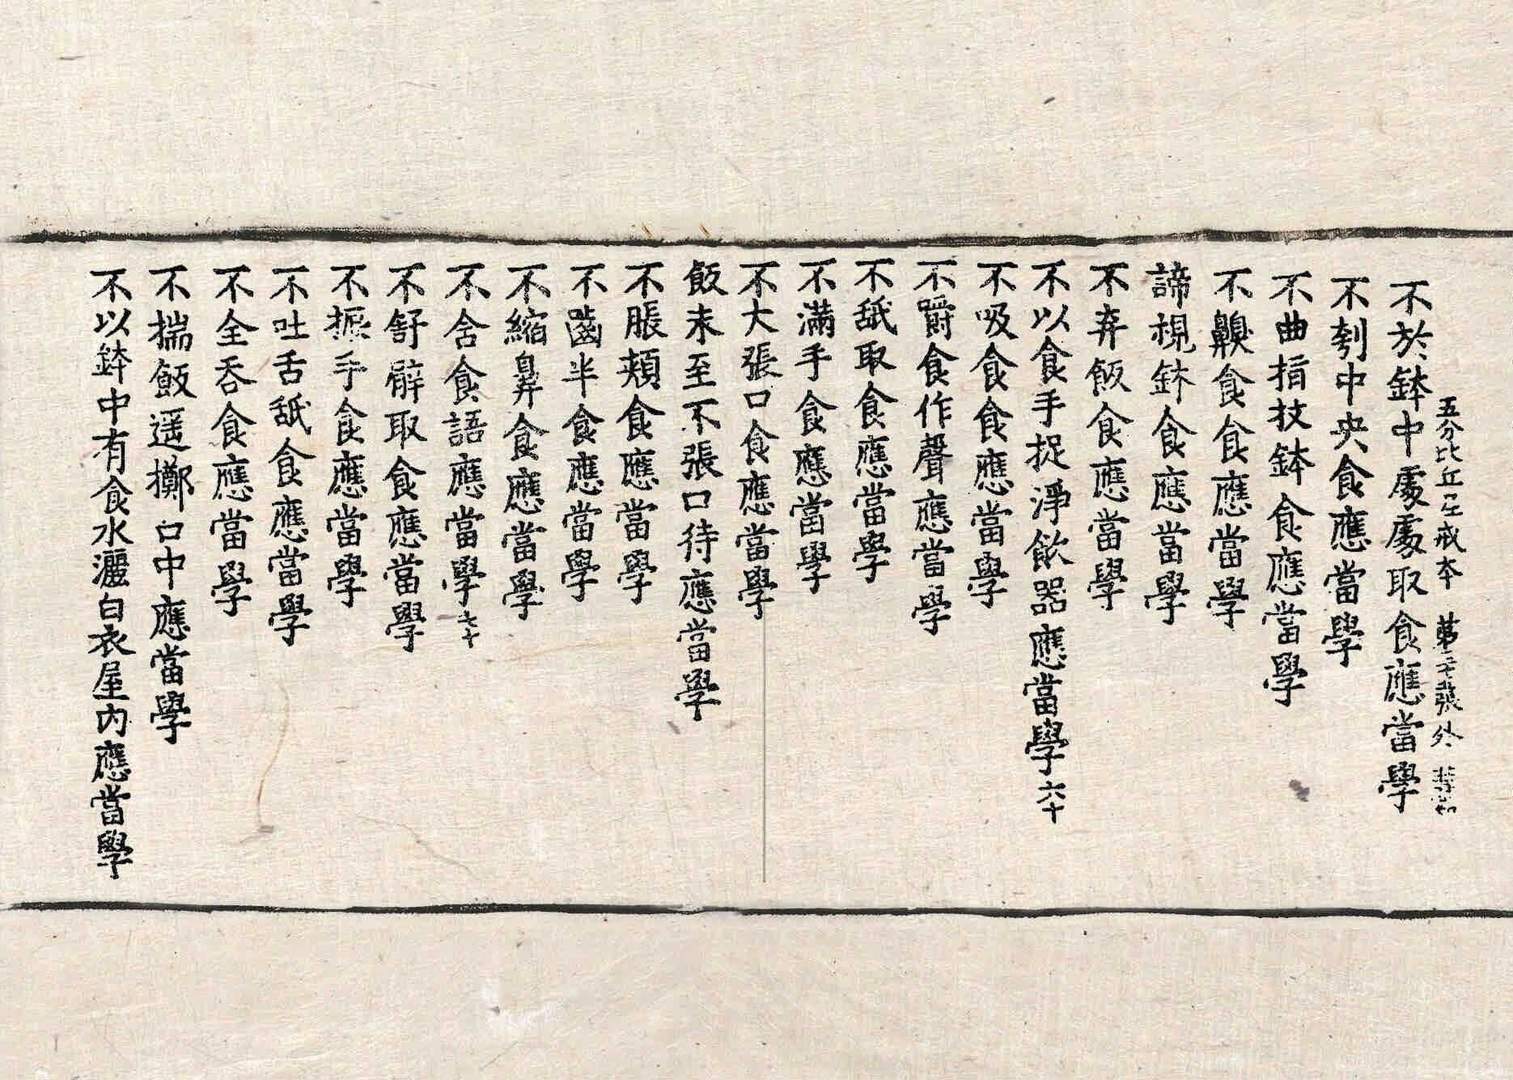 五分比丘尼戒本　第二張外
不於鉢中處處取食應當學
不刳中央食應當學
不曲指抆鉢食應當學
不齅食食應當學
諦視鉢食應當學
不棄飯食應當學
不以食手捉淨飲器應當學六十
不吸食食應當學
不嚼食作聲應當學
不舐取食應當學
不滿手食應當學
不大張口食應當學
飯未至不張口待應當學
不脹頰食應當學
不齧半食應當學
不縮鼻食應當學
不含食語應當學七十
不舒臂取食應當學
不振手食應當學
不吐舌舐食應當學
不全吞食應當學
不揣飯遥擲口中應當學
不以鉢中有食水灑白衣屋內應當學